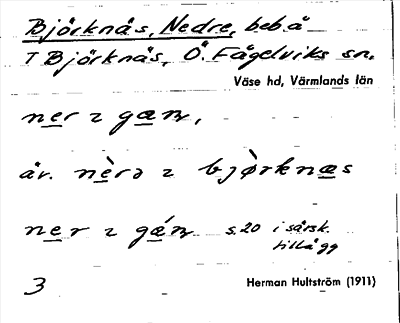 Björknäs, Nedre, beb. å
T Björknäs, Ö. Fågelviks sn.
Väse hd, Värmlands län
ner ɩ gæɳ,
äv. nèrə ɩ bjørknæs
ner ɩ gǽɳ s. 20 i särsk.
tillägg
3 Herman Hultström (1911)